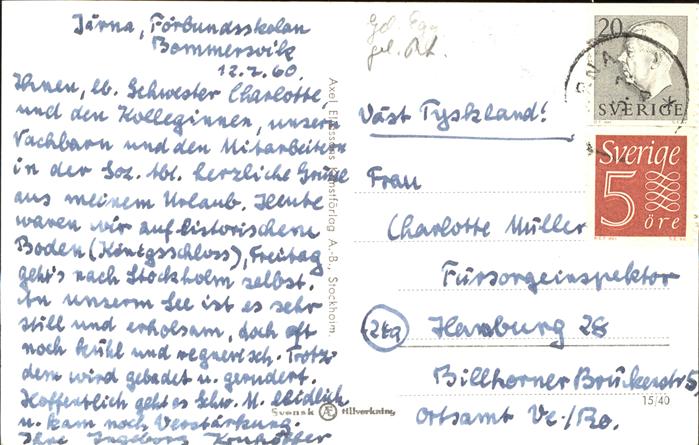 Järna, Förbundsskolan
Bommersvik
12.7.60.
Ihnen, lb. Schwester Charlotte,
und den Kolleginnen, unseren
Nachbarn und den Mitarbeitern
in der Soz. Abt. herzliche Grüße
aus meinem Urlaub. Heute
waren wir auf historischem
Boden (Königsschloss), Freitag
geht's nach Stockholm selbst.
An unserm See ist es sehr
still und erholsam, doch oft
noch kühl und regnerisch. Trotz-
dem wird gebadet u. gerudert.
Hoffentlich geht es Schw. M. leidlich
u. kam noch Verstärkung.
Ihre Ingeborg
Axel Eliassons Konstförlag A.-B., Stockholm.
Svensk AE tillverkning
gel.
gel.
20
SVERIGE
Sverige
5
öre
Väst Tyskland!
Frau
Charlotte Müller
Fürsorgeinspektor
(24a) Hamburg 28
Billhorner Brückenstr 5
15/40
Ortsamt Ve./Ro.